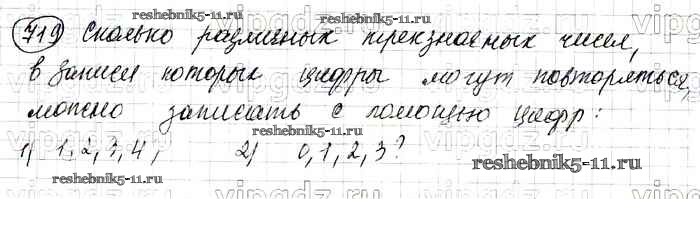 reshebnik5-11.ru
719 Сколько различных трехзначных чисел,
в записи которых цифры могут повторяться,
можно записать с помощью цифр:
vipgdz.ru
reshebnik5-11.ru
1) 1, 2, 3, 4; 2) 0, 1, 2, 3?
reshebnik5-11.ru
reshebnik5-11.ru